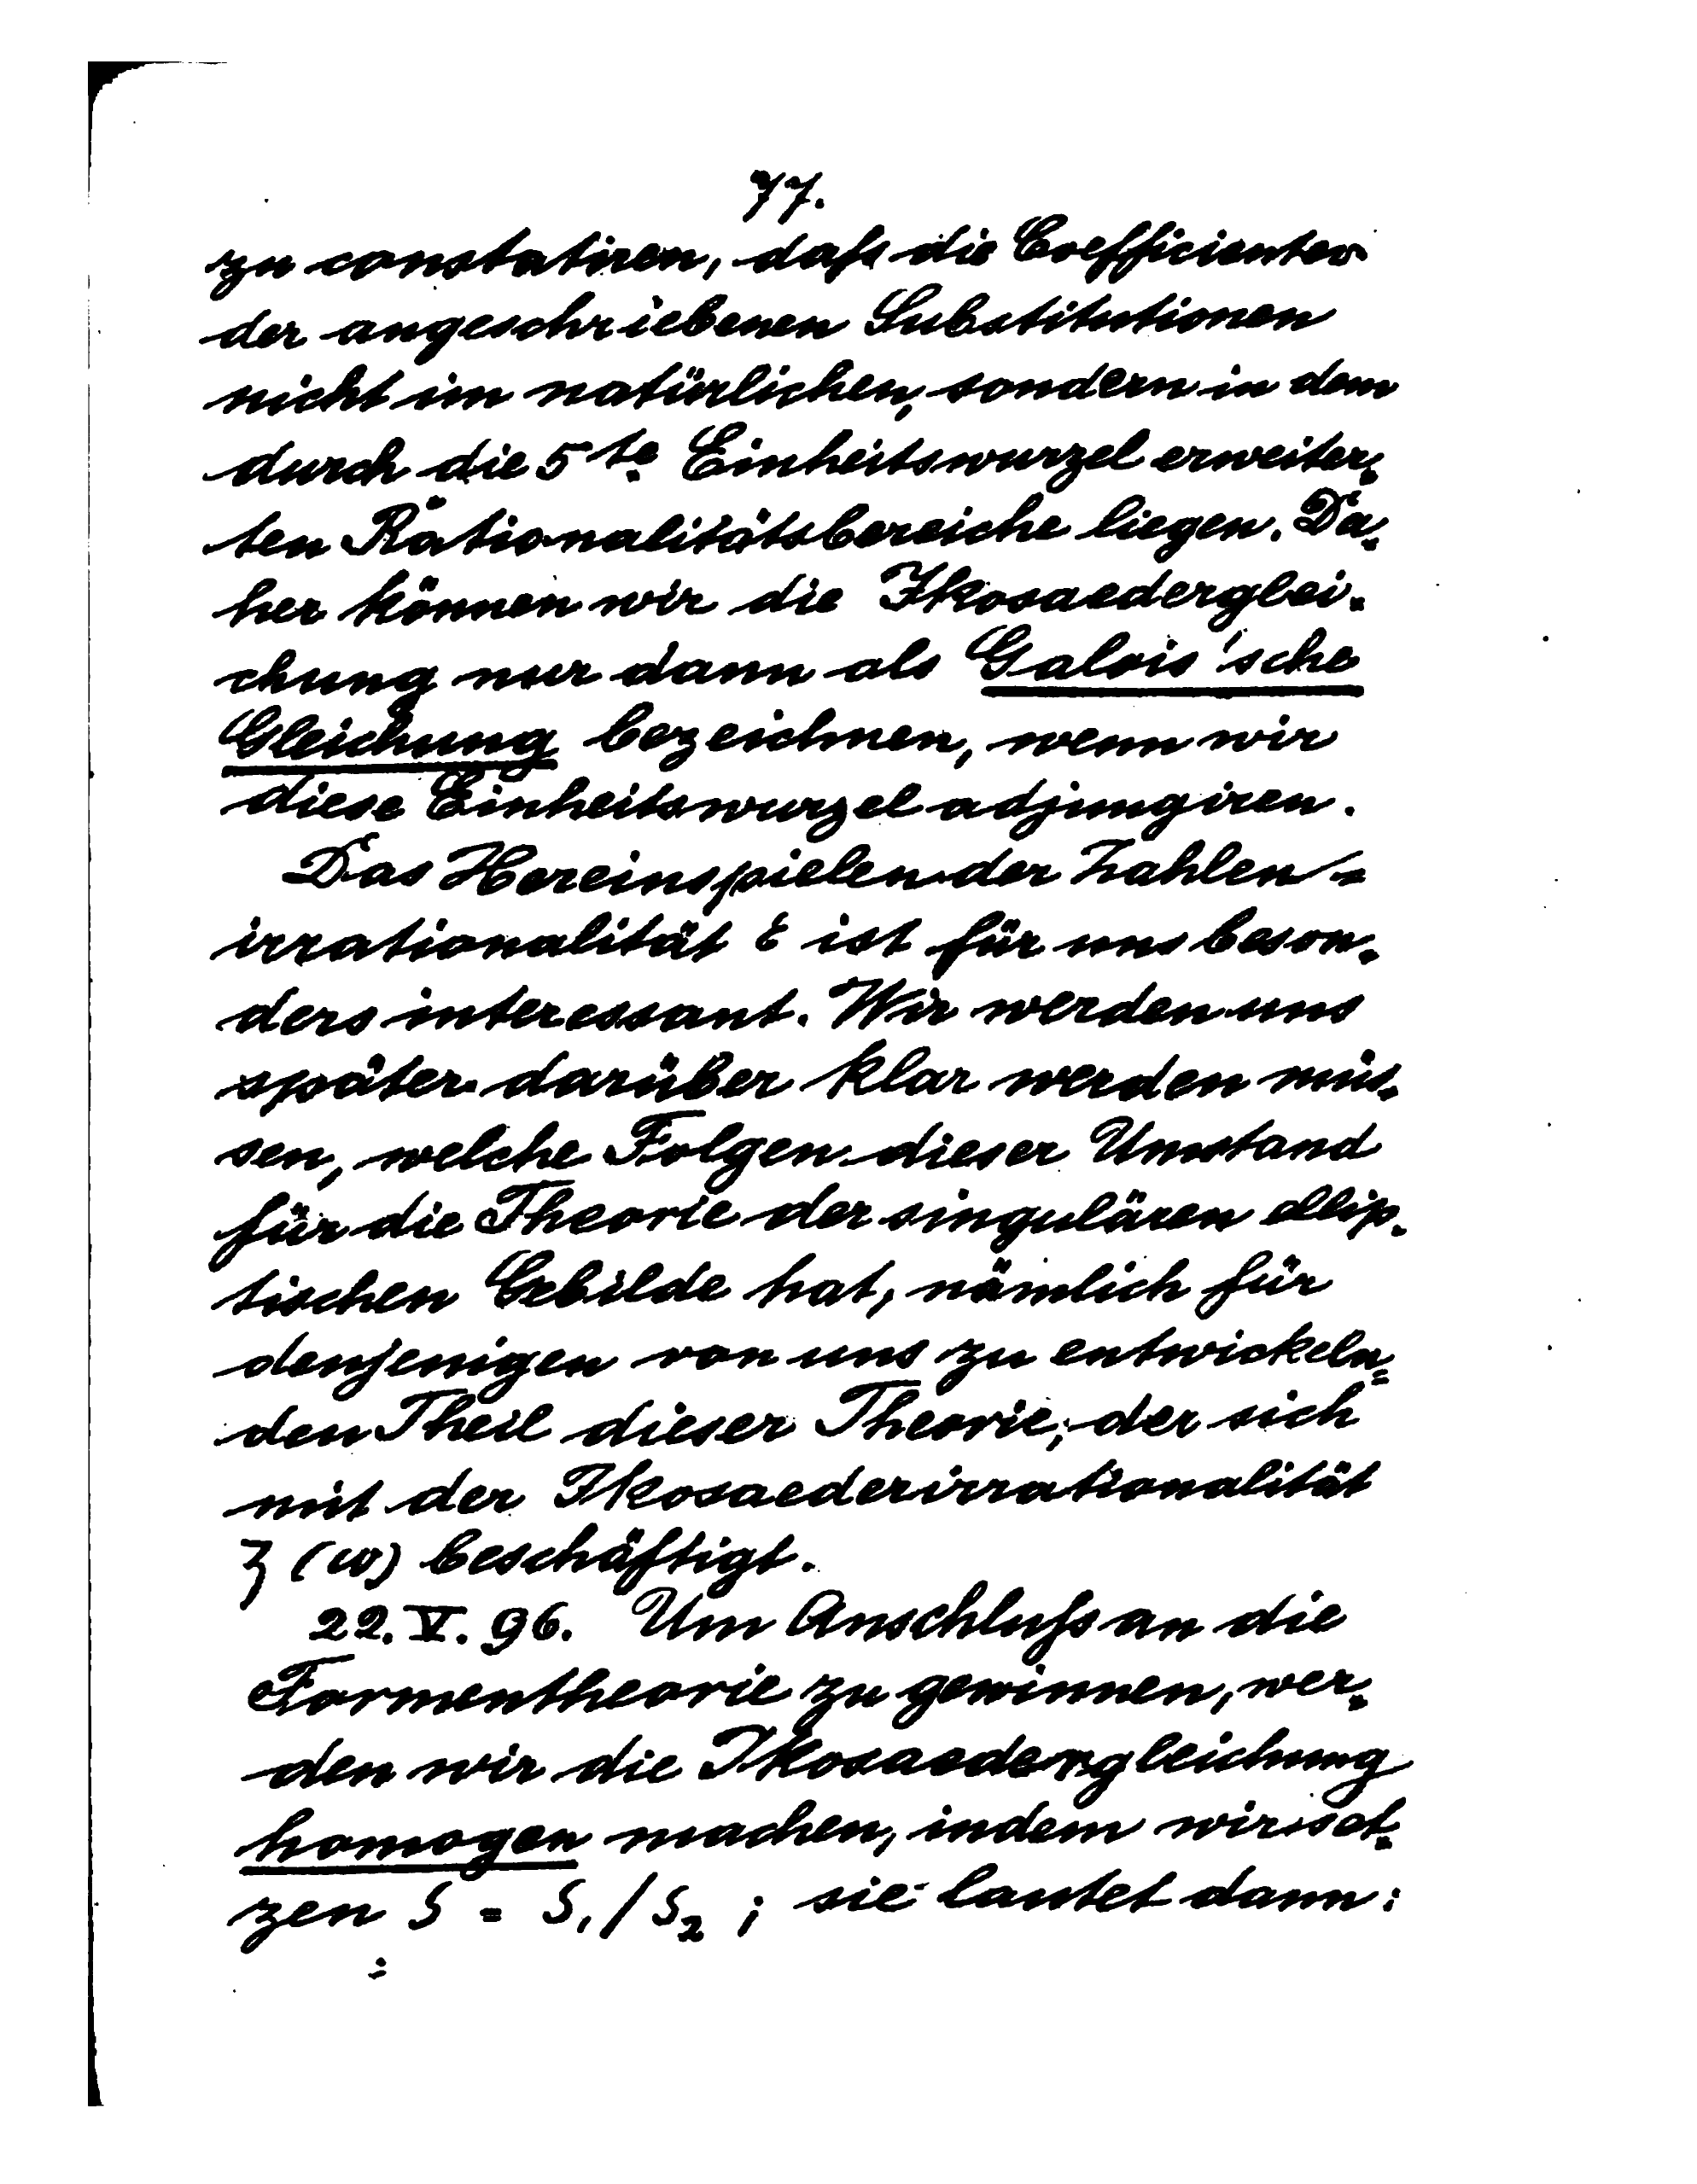 77.
zu constatiren, daß die Coefficienten
der angeschriebenen Substitutionen
nicht im natürlichen, sondern in dem
durch die 5te Einheitswurzel erweiter-
ten Rationalitätsbereiche liegen. Da-
her können wir die Ikosaederglei-
chung nur dann als Galois'sche
Gleichung bezeichnen, wenn wir
diese Einheitswurzel adjungiren.
Das Hereinspielen der Zahlen=
irrationalität ε ist für uns beson-
ders interessant. Wir werden uns
später darüber klar werden müs-
sen, welche Folgen dieser Umstand
für die Theorie der singulären ellip-
tischen Gebilde hat, nämlich für
denjenigen von uns zu entwickeln=
den Theil dieser Theorie, der sich
mit der Ikosaederirrationalität
ζ (ω) beschäftigt.
22. V. 96. Um Anschluß an die
Formentheorie zu gewinnen, wer-
den wir die Ikosaedergleichung
homogen machen, indem wir set-
zen ζ = ζ₁/ζ₂ ; sie lautet dann: